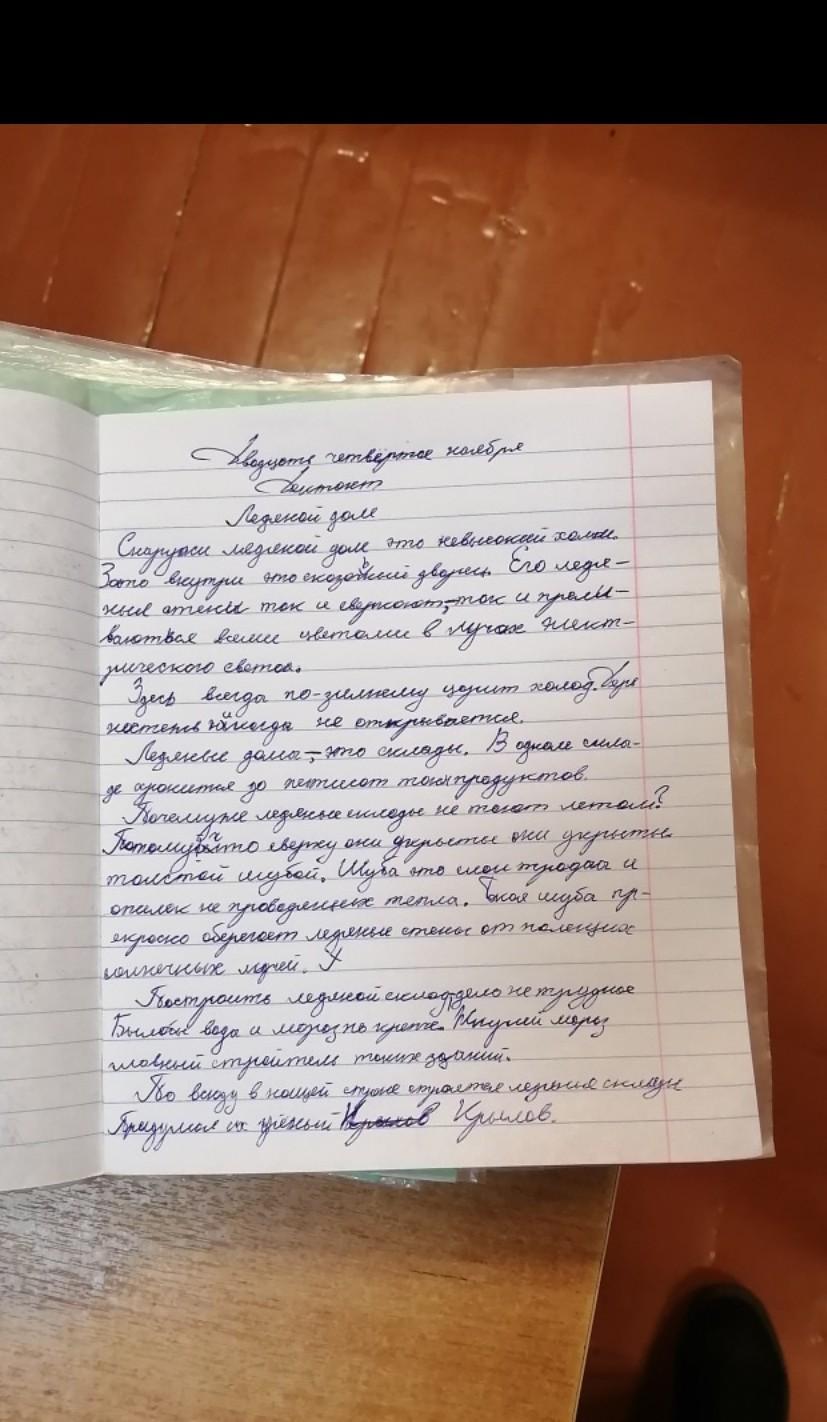 Двадцать четвёртое ноября
Диктант
Ледяной дом
Снаружи ледяной дом это невысокий холм.
Зато внутри это сказочный дворец. Его ледя-
ные стены так и сверкают, так и прелы-
ваються всеми цветами в лучах элект-
рического света.
Здесь всегда по-зимнему царит холод. Даже
никогда не открывается.
Ледяные дома, - это склады. В одном скла-
де хранится до пятисот тонн продуктов.
Почему же ледяные склады не тают летом?
Потому что сверху они укрыты они укрыты
толстой шубой. Шуба это слои
и
опилек не проводящих тепла. Такая шуба пр-
екрасно оберегает ледяные стены от палящих
солнечных лучей.
Построить ледяной склад дело не трудное
Была бы вода и мороз по крепче. мороз
главный строитель таких зданий.
По всюду в нашей стране строятся ледяные склады
Придумал их учёный Крылов Крылов.